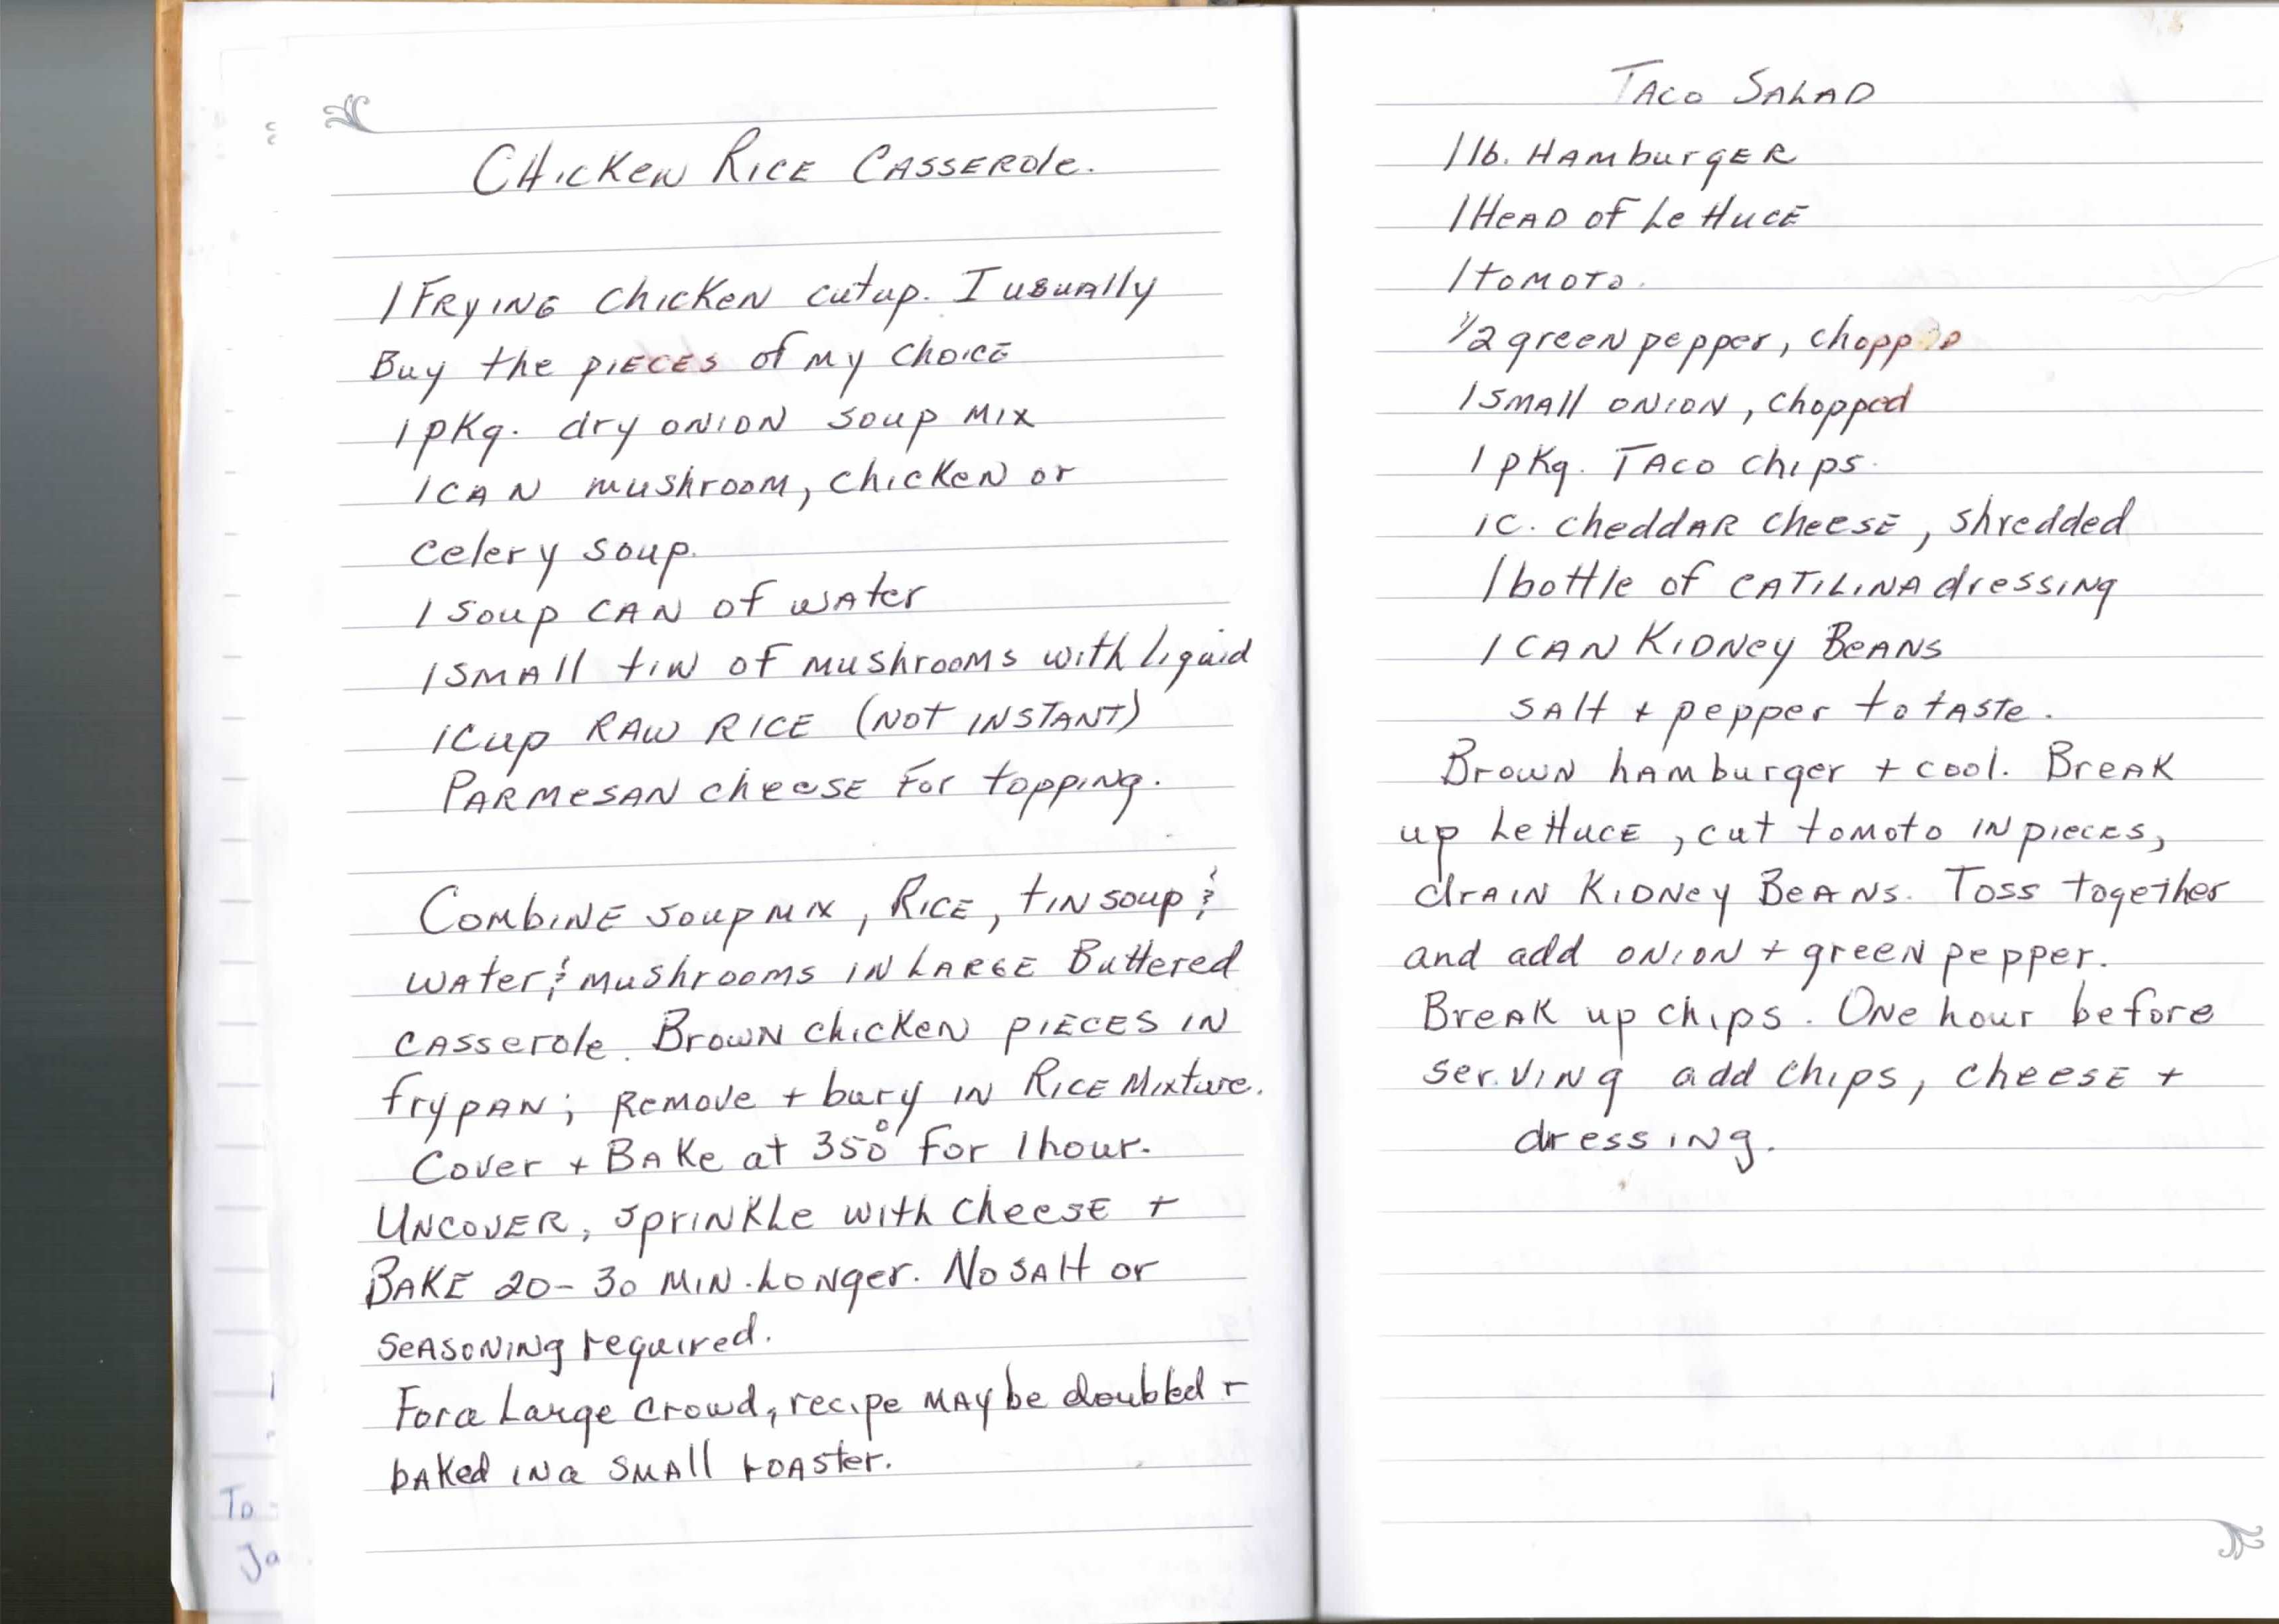 Chicken Rice Casserole.
1 Frying chicken cut up. I usually
Buy the pieces of my choice
1 pkg. dry onion soup mix
1 can mushroom, chicken or
celery soup.
1 soup can of water
1 small tin of mushrooms with liquid
1 cup raw rice (not instant)
Parmesan cheese for topping.
Combine soup mix, Rice, tin soup &
water & mushrooms in large Buttered
casserole. Brown chicken pieces in
frypan; remove + bury in Rice Mixture.
Cover + Bake at 350° for 1 hour.
Uncover, sprinkle with cheese +
Bake 20-30 min. longer. No salt or
seasoning required.
For a large crowd, recipe may be doubled +
baked in a small roaster.
To
Ja
Taco Salad
1 lb. Hamburger
1 Head of Lettuce
1 tomoto.
1/2 green pepper, chopped
1 small onion, chopped
1 pkg. Taco chips.
1 c. cheddar cheese, shredded
1 bottle of Catilina dressing
1 can Kidney Beans
salt + pepper to taste.
Brown hamburger + cool. Break
up Lettuce, cut tomoto in pieces,
drain Kidney Beans. Toss together
and add onion + green pepper.
Break up chips. One hour before
serving add chips, cheese +
dressing.